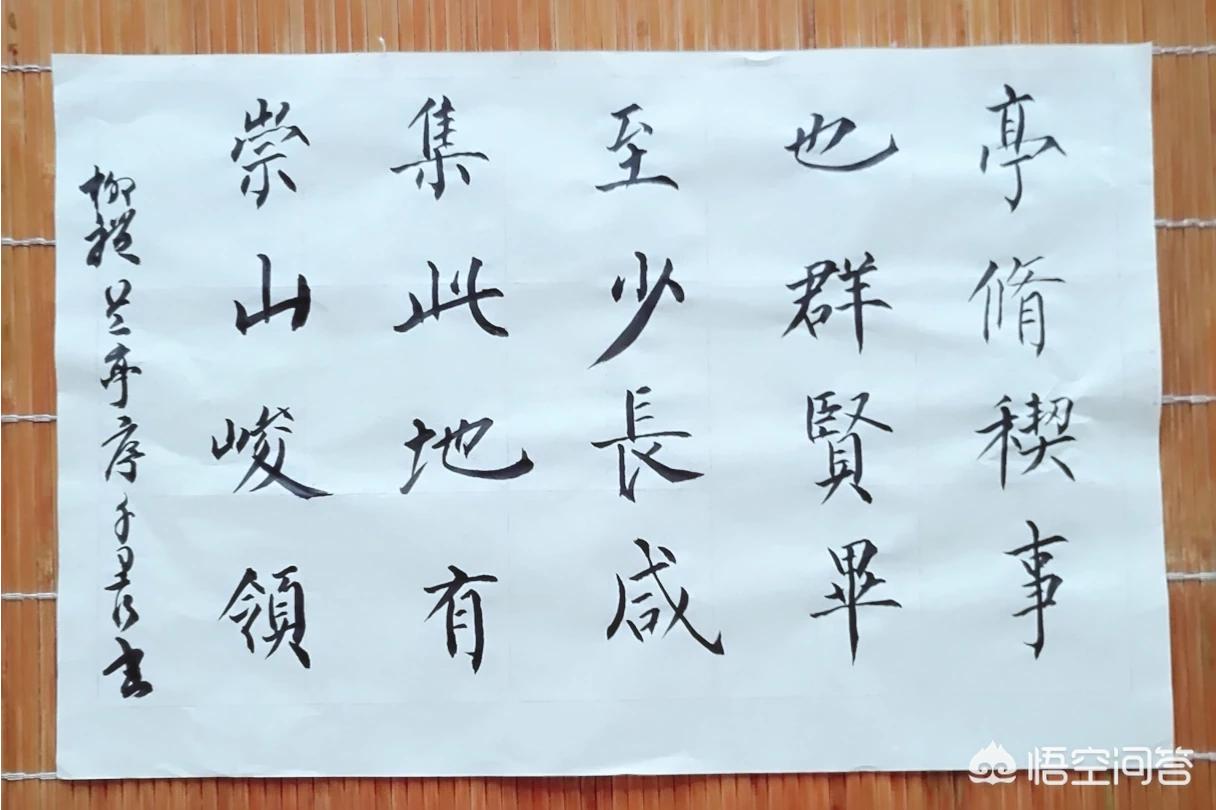 亭脩稧事
也群賢畢
至少長咸
集此地有
崇山峻領
蘭亭序千里行书
悟空问答